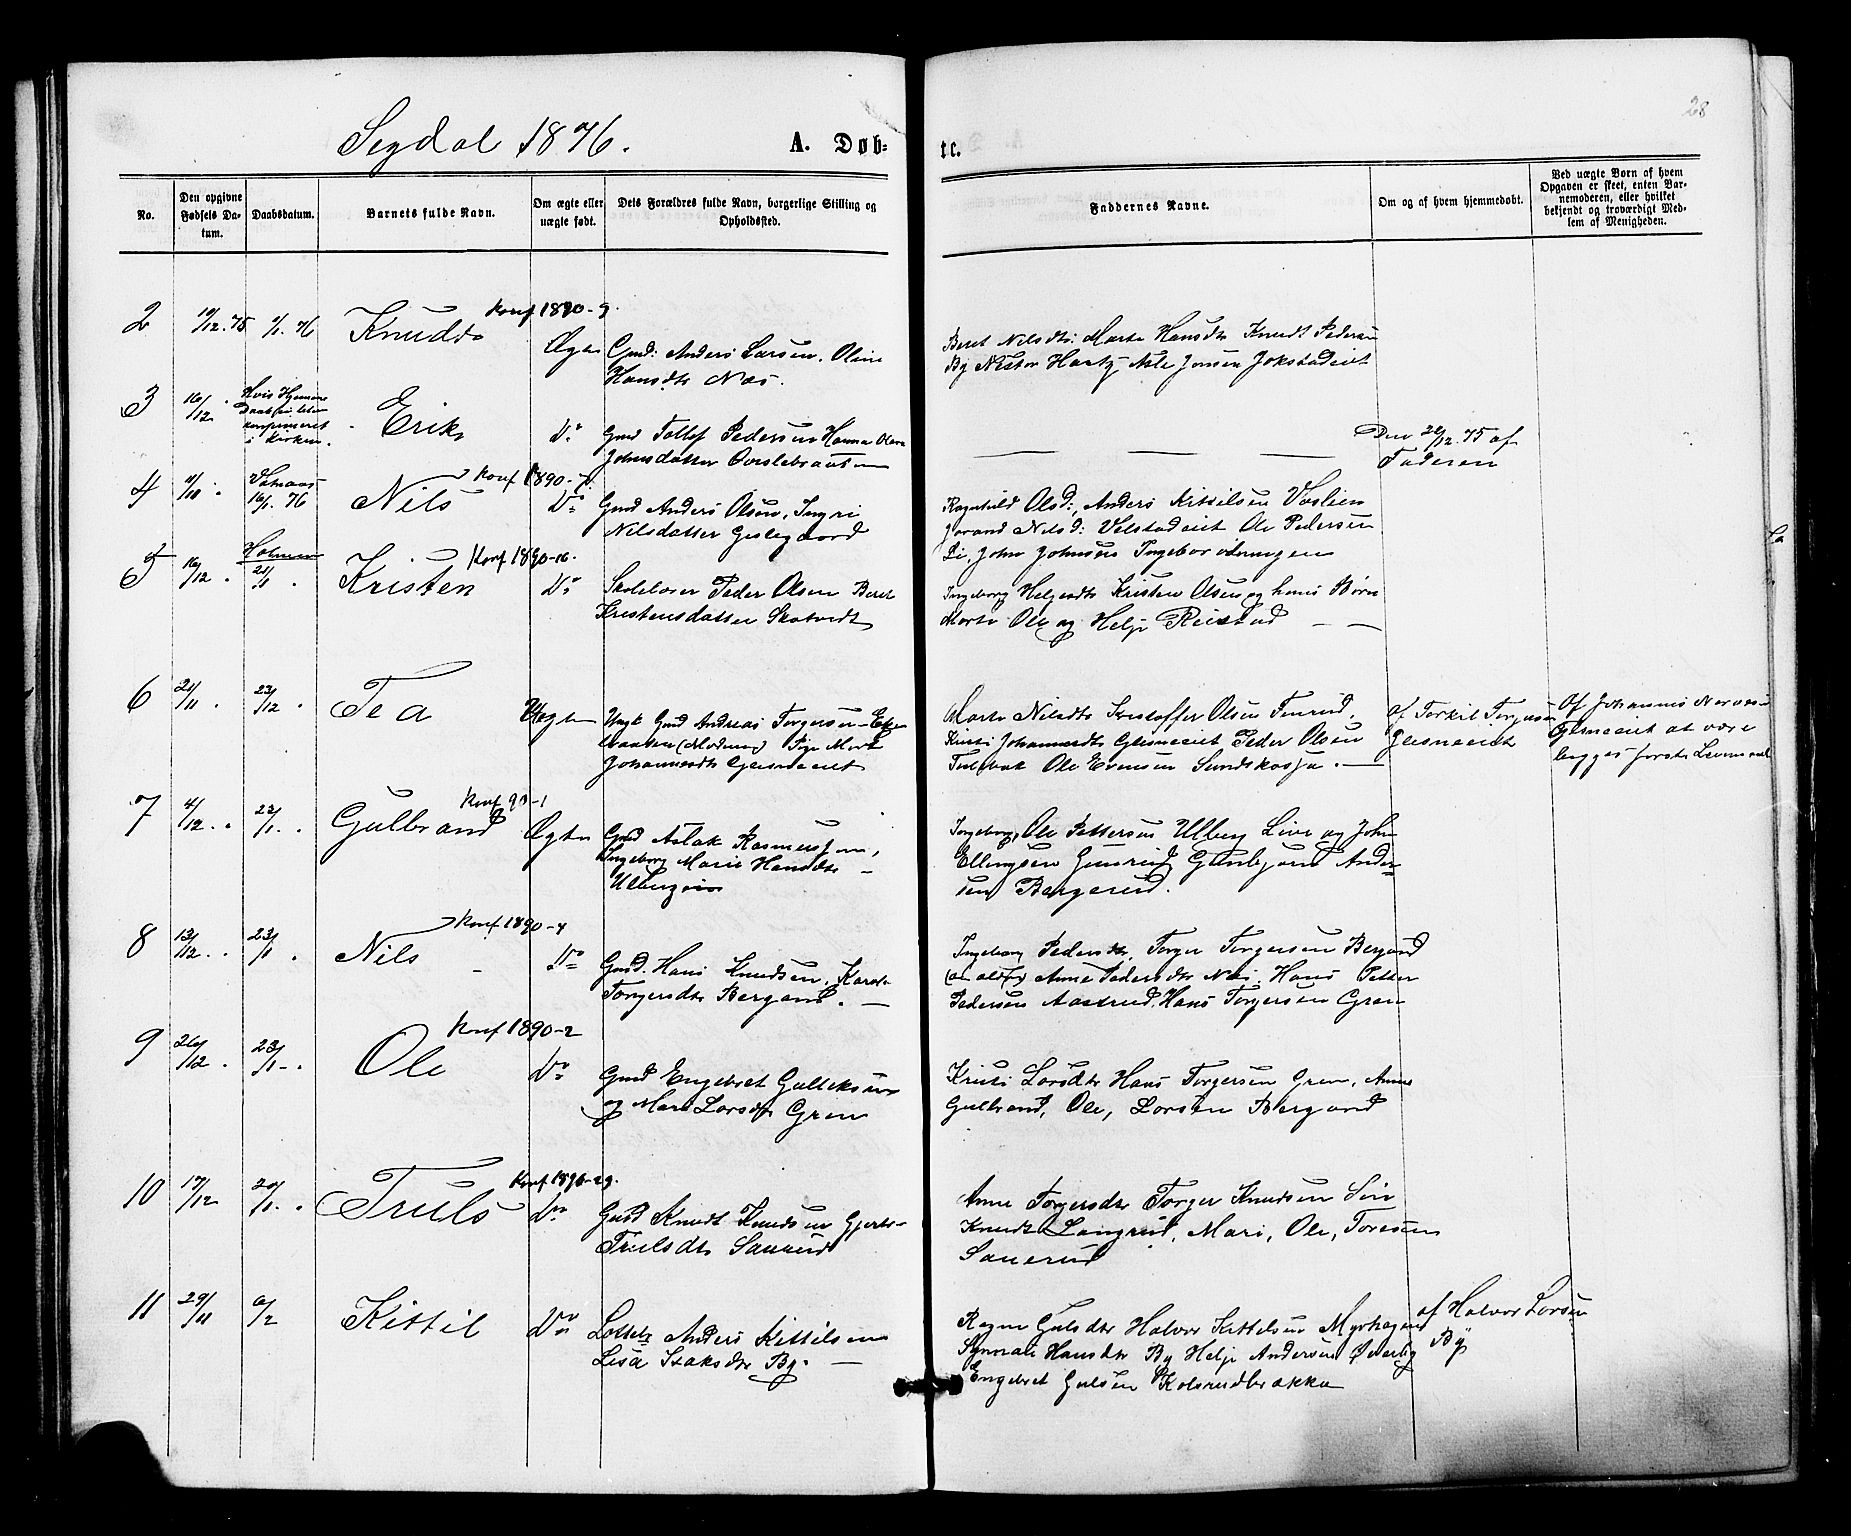 28
Segdal 1876.
A. Døb-
te.
No.
Den opgivne Fødsels Datum.
Daabsdatum.
Barnets fulde Navn.
Om ægte eller uægte født.
Dets Forældres fulde Navn, borgerlige Stilling og Opholdssted.
Faddernes Navne.
Om og af hvem hjemmedøbt.
Ved uægte Born af hvem Opgaven er skeet, enten Barnemoderen, eller hvilket bekjendt og troværdigt Medlem af Menigheden.
2
10/12. 75
6/1. 76
Knudt
Konf 1890-9.
Ægte
Gmd: Anders Larsen, Oline
Hansdtr Næs.
Beret Nilsdtr: Marte Hansdtr Knudt Pedersen
By Nestor Hartz Asle Jonsen Jokstadeiet
3
16/12
Hvis Hjemme
Daab
i Kirken.
Erik
Do
Gmd Tollef Pedersen Hanna Olava
Johnsdatter Overslebraaten
Den 22/12. 75 af
Faderen
4
16/1. 76
Nils
Konf 1890-7.
Do
Gmd Anders Olsen, Ingri
Nilsdatter Geslegaard
Ragnhild Olsd:, Anders Kittilsen Vaslien
Jorand Nilsd: Velstadeiet Ole Pedersen
Li, John Johnsen Ingebor
5
16/12
Holmen
21/1
Kristen
Konf 1890-16.
Do
Skolelærer Peder Olsen Beret
Kristensdatter Skatvedt
Ingeborg Helgesdtr Kristen Olsen og hans Børn
Marte Ole og Helge Reistad
6
21/11
23/12
Tea
Uægte
Ungk Gmd Andreas Torgersen
(Moderen) Pige Mart
Johannesdtr Glesneeiet
Marte Nilsdtr Kristoffer Olsen Finrud,
Kristi Johannesdtr Glesneeiet Peder Olsen
Ole Evensen
af Torkil Torgersen
Glesneeiet
Af Johannes
Glesneeiet at være
begges første Leiermaal
7
4/12
23/1.
Gulbrand
Konf 90-1
Ægte
Gmd Aslak Rasmussen,
Ingeborg Marie Hansdtr
Ulberg
Ingeborg, Ole Pettersen Ulberg Live og John
Ellingsen Gunbjørn Ander-
sen Bergerud.
8
13/12
23/1
Nils
Konf 1890-4
Do
Gmd. Hans Knudsen, Karen
Torgersdtr Bergand.
Ingeborg Pedersdtr, Torger Torgersen Bergand
Anne Pedersdtr Næs, Hans Petter
Pedersen Aasterud, Hans Torgersen Gren
9
26/12
23/1
Ole
Konf 1890-2
Do
Gmd Engebret Gulleksen
og Mari Larsdtr Gren
Kristi Larsdtr Hans Torgersen Gren, Anne
Gulbrand, Ole, Larsen Bergand
10
17/12
Truls
Konf 1890-29.
Do
Gmd Knudt Knudsen Gjertr
Trulsdtr Sanerud
Anne Torgersdtr Torger Knudsen
Knudt Langrud, Mari, Ole, Toresen
Sanerud
11
29/11
6/2
Kittil
Do
Anders Kittilsen
Lisa Isaksdtr By.
Ragne Gulsdtr Halvor Kittelsen Myrhagen
Hansdtr By Helge Andersen Øverby
Engebret Gulsen Kolsrudbrækka
af Halvor Larsen
By